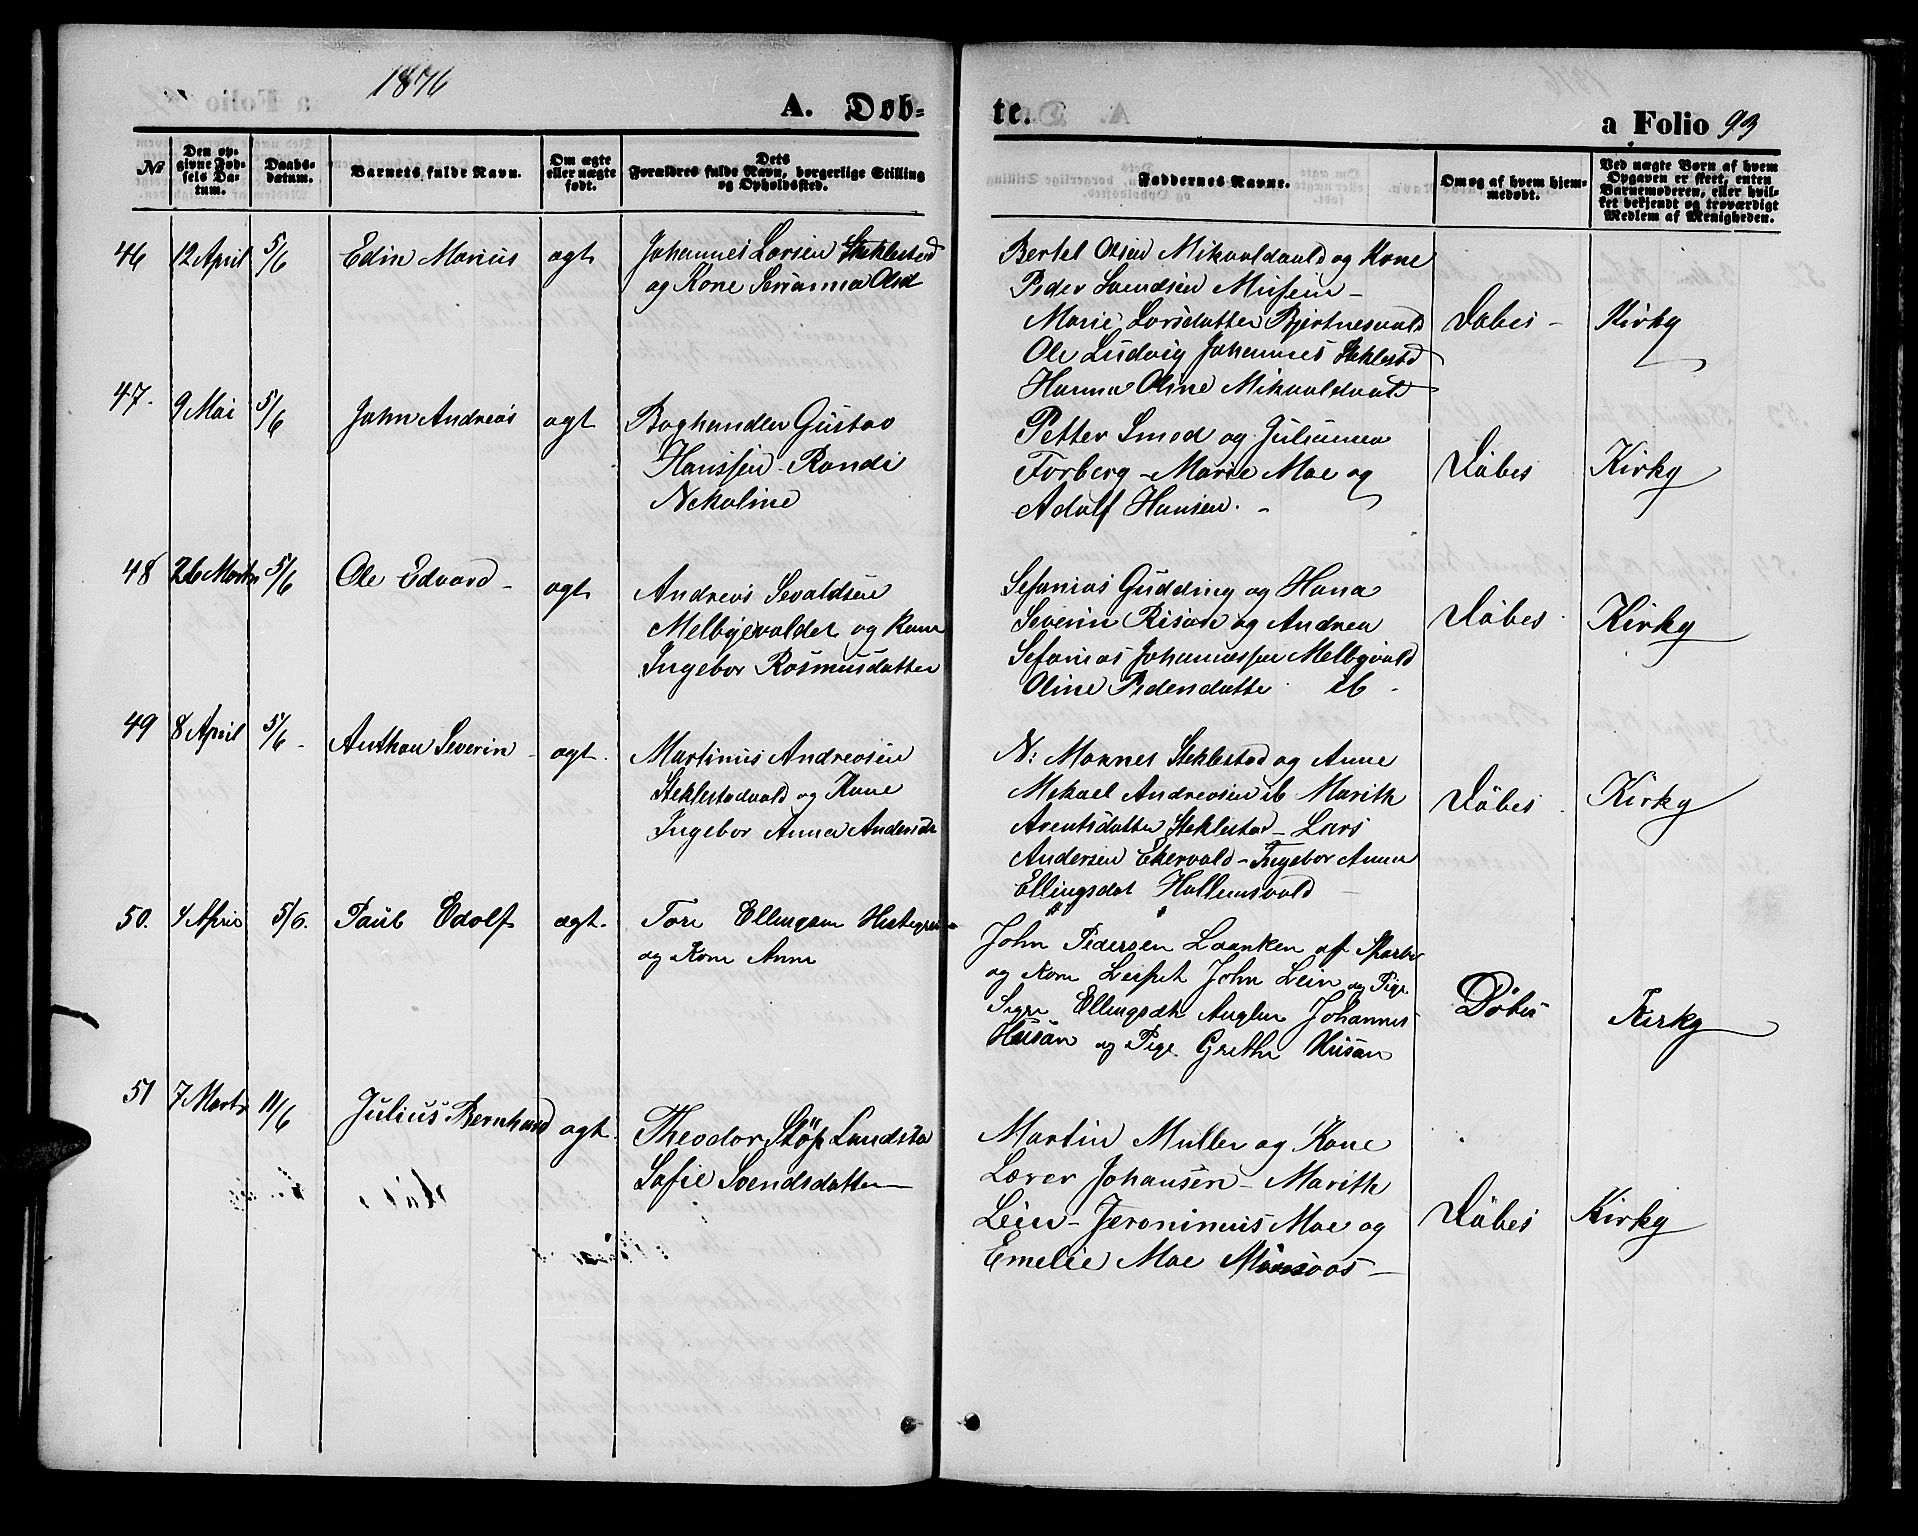 1876
A. Døb-
te.
a Folio 93
No
Den op-
givne Fød-
sels Da-
tum.
Daabs-
datum.
Barnets fulde Navn.
Om ægte
eller uægte
født.
Dets
Forældres fulde Navn, borgerlige Stilling
og Opholdssted.
Faddernes Navne.
Om og af hvem hjem-
medøbt.
Ved uægte Børn af hvem
Opgaven er skeet, enten
Barnemoderen, eller hvil-
ket bekjendt og troværdigt
Medlem af Menigheden.
46 12 April 5/6 Edin Marius agt
Johannes Larsen Steklestad
og Kone Serianna Olsd
Bertel Olsen Mikvoldvald og Kone
Peder Svendsen Musem -
Marie Larsdatter Bjertnesvald
Ole Ludvig Johannes Steklestad
Hanna Oline Mikvoldvald
Døbes - Kirky
47. 9 Mai 5/6 John Andreas agt
Boghandler Gustav
Hanssen - Randi
Nekoline
Petter Smed og Julianna
Forberg - Marie Moe og
Adolf Hansen. -
Døbes Kirky
48 26 Marts 5/6 Ole Edvard - agt
Andreas Sevaldsen
Melbyevaldet og Kone
Ingebor Rasmusdatter
Sefanias Gudding og Hana
Severin Risan og Andrea
Sefanias Johannessen Melbyvald
Oline Pedersdatter ib -
Døbes Kirky
49 8 April 5/6 - Anthon Severin - agt.
Martinus Andreasen
Steklestadvald og Kone
Ingebor Anna Andersdt
N: Mannes Steklestad og Anne
Mekael Andreasen ib Marith
Arentsdatter Steklestad - Lars
Andersen Ekervald - Ingebor Anna
Ellingsdat Hallemsvald -
Døbes Kirky
50. 4 April 5/6. Paul Edolf ægt.
Tore Ellingsen
og Kone Anne
John Pedersen af
og Kone John Lein og Pige
Ellingsdtr Johannes
Husan og Pige Grethe Husan
Døbes Kirky
51 7 Marts 11/6 Julius Bernhard agt.
Theodor Støp Landstad
Sofie Svendsdatter -
Martin Muller og Kone
Lærer Johansen - Marith
Lein - Jeronimus Moe og
Emelie Moe
Døbes Kirky